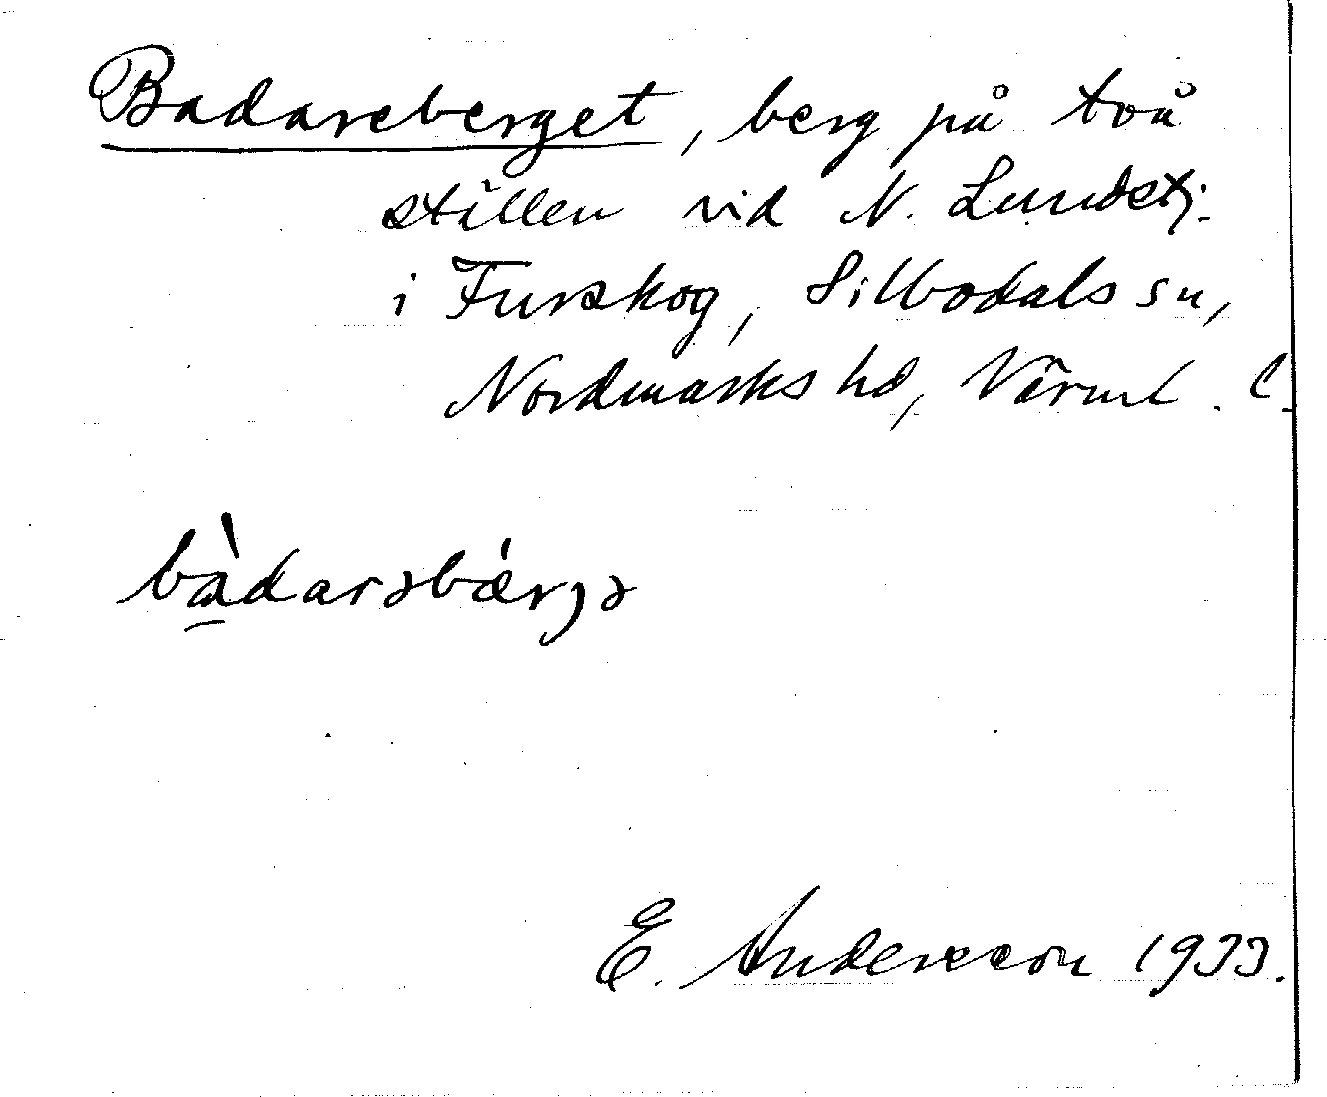 Badareberget, berg på två
ställen vid N. Lundstj.
i Furskog, Silbodals sn,
Nordmarks hd, Värml. l.
bàdarəbǽrjə
E. Andersson 1933.